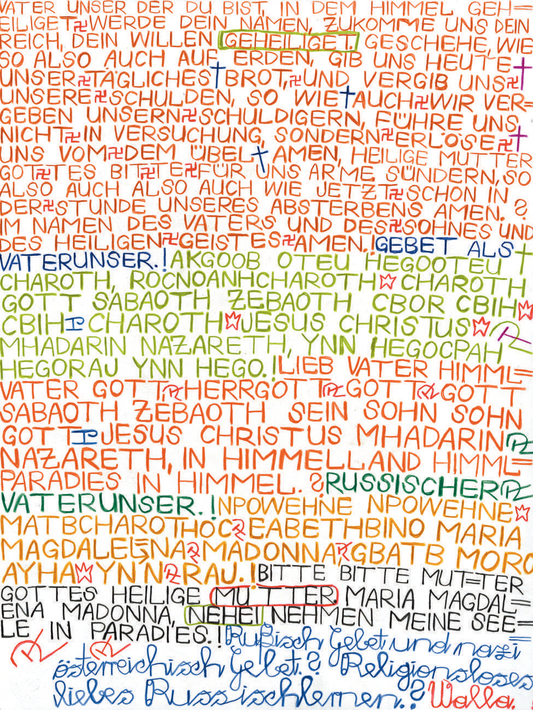 VATER UNSER DER DU BIST, IN DEM HIMMEL GEH=
EILIGET卐WERDE DEIN NAMEN, ZUKOMME UNS DEIN
REICH, DEIN WILLEN GEHEILIGET. GESCHEHE, WIE
SO ALSO AUCH AUF ERDEN, GIB UNS HEUTE✝
UNSER卐TÄGLICHES✝BROT,卐UND VERGIB UNS卐
UNSERE卐SCHULDEN, SO WIE✝AUCH卐WIR VER=
GEBEN UNSERN卐SCHULDIGERN, FÜHRE UNS,
NICHT卐IN VERSUCHUNG, SONDERN卐ERLÖSE卐✝
UNS VOM卐DEM ÜBEL✝AMEN, HEILIGE MUTTER
GOT卐TES BIT卐TE卐FÜR UNS ARME SÜNDERN, SO
ALSO AUCH ALSO AUCH WIE JETZT卐SCHON IN
DER卐STUNDE UNSERES ABSTERBENS AMEN. ?
IM NAMEN DES VATERS UND DES卐SOHNES UND
DES HEILIGEN卐GEISTES卐AMEN.!GEBET ALS✝
VATERUNSER.!AKGOOB OTEU HEGOOTEU✝
CHAROTH, ROCNOANHCHAROTH CHAROTH
GOTT SABAOTH ZEBAOTH CBOR CBIH
CBIH CHAROTH JESUS CHRISTUS
MHADARIN NAZARETH, YNN HEGOCPAH
HEGORAU YNN HEGO.!LIEB VATER HIMML=
VATER GOTT HERRGOTT GOTT GOTT
SABAOTH ZEBAOTH SEIN SOHN SOHN
GOTT JESUS CHRISTUS MHADARIN
NAZARETH, IN HIMMELLAND HIMML=
PARADIES IN HIMMEL.?RUSSISCHER
VATERUNSER.!NPOWEHNE NPOWEHNE
MATBCHAROTHOC EABETHBINO MARIA
MAGDALENA MADONNA GBATB MORO
AYHA YNN RAU.!BITTE BITTE MUTTER
GOTTES HEILIGE MUTTER MARIA MAGDAL=
ENA MADONNA, NEHEI NEHMEN MEINE SEE=
LE IN PARADIES.!Rußisch Gebet und nazi
österreichisch Gebet.? Religionsloses
liebes Russischlernen.? Walla.